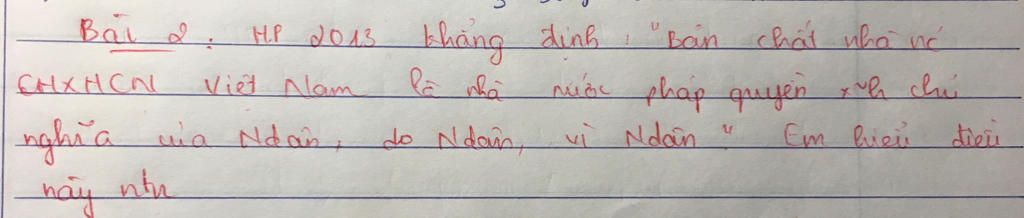 Bài 2: HP 2013 khẳng định: "Bản chất nhà nc
CHXHCN Việt Nam là nhà nước pháp quyền xh chủ
nghĩa của Ndân, do Ndân, vì Ndân" Em hiểu điều
này ntn